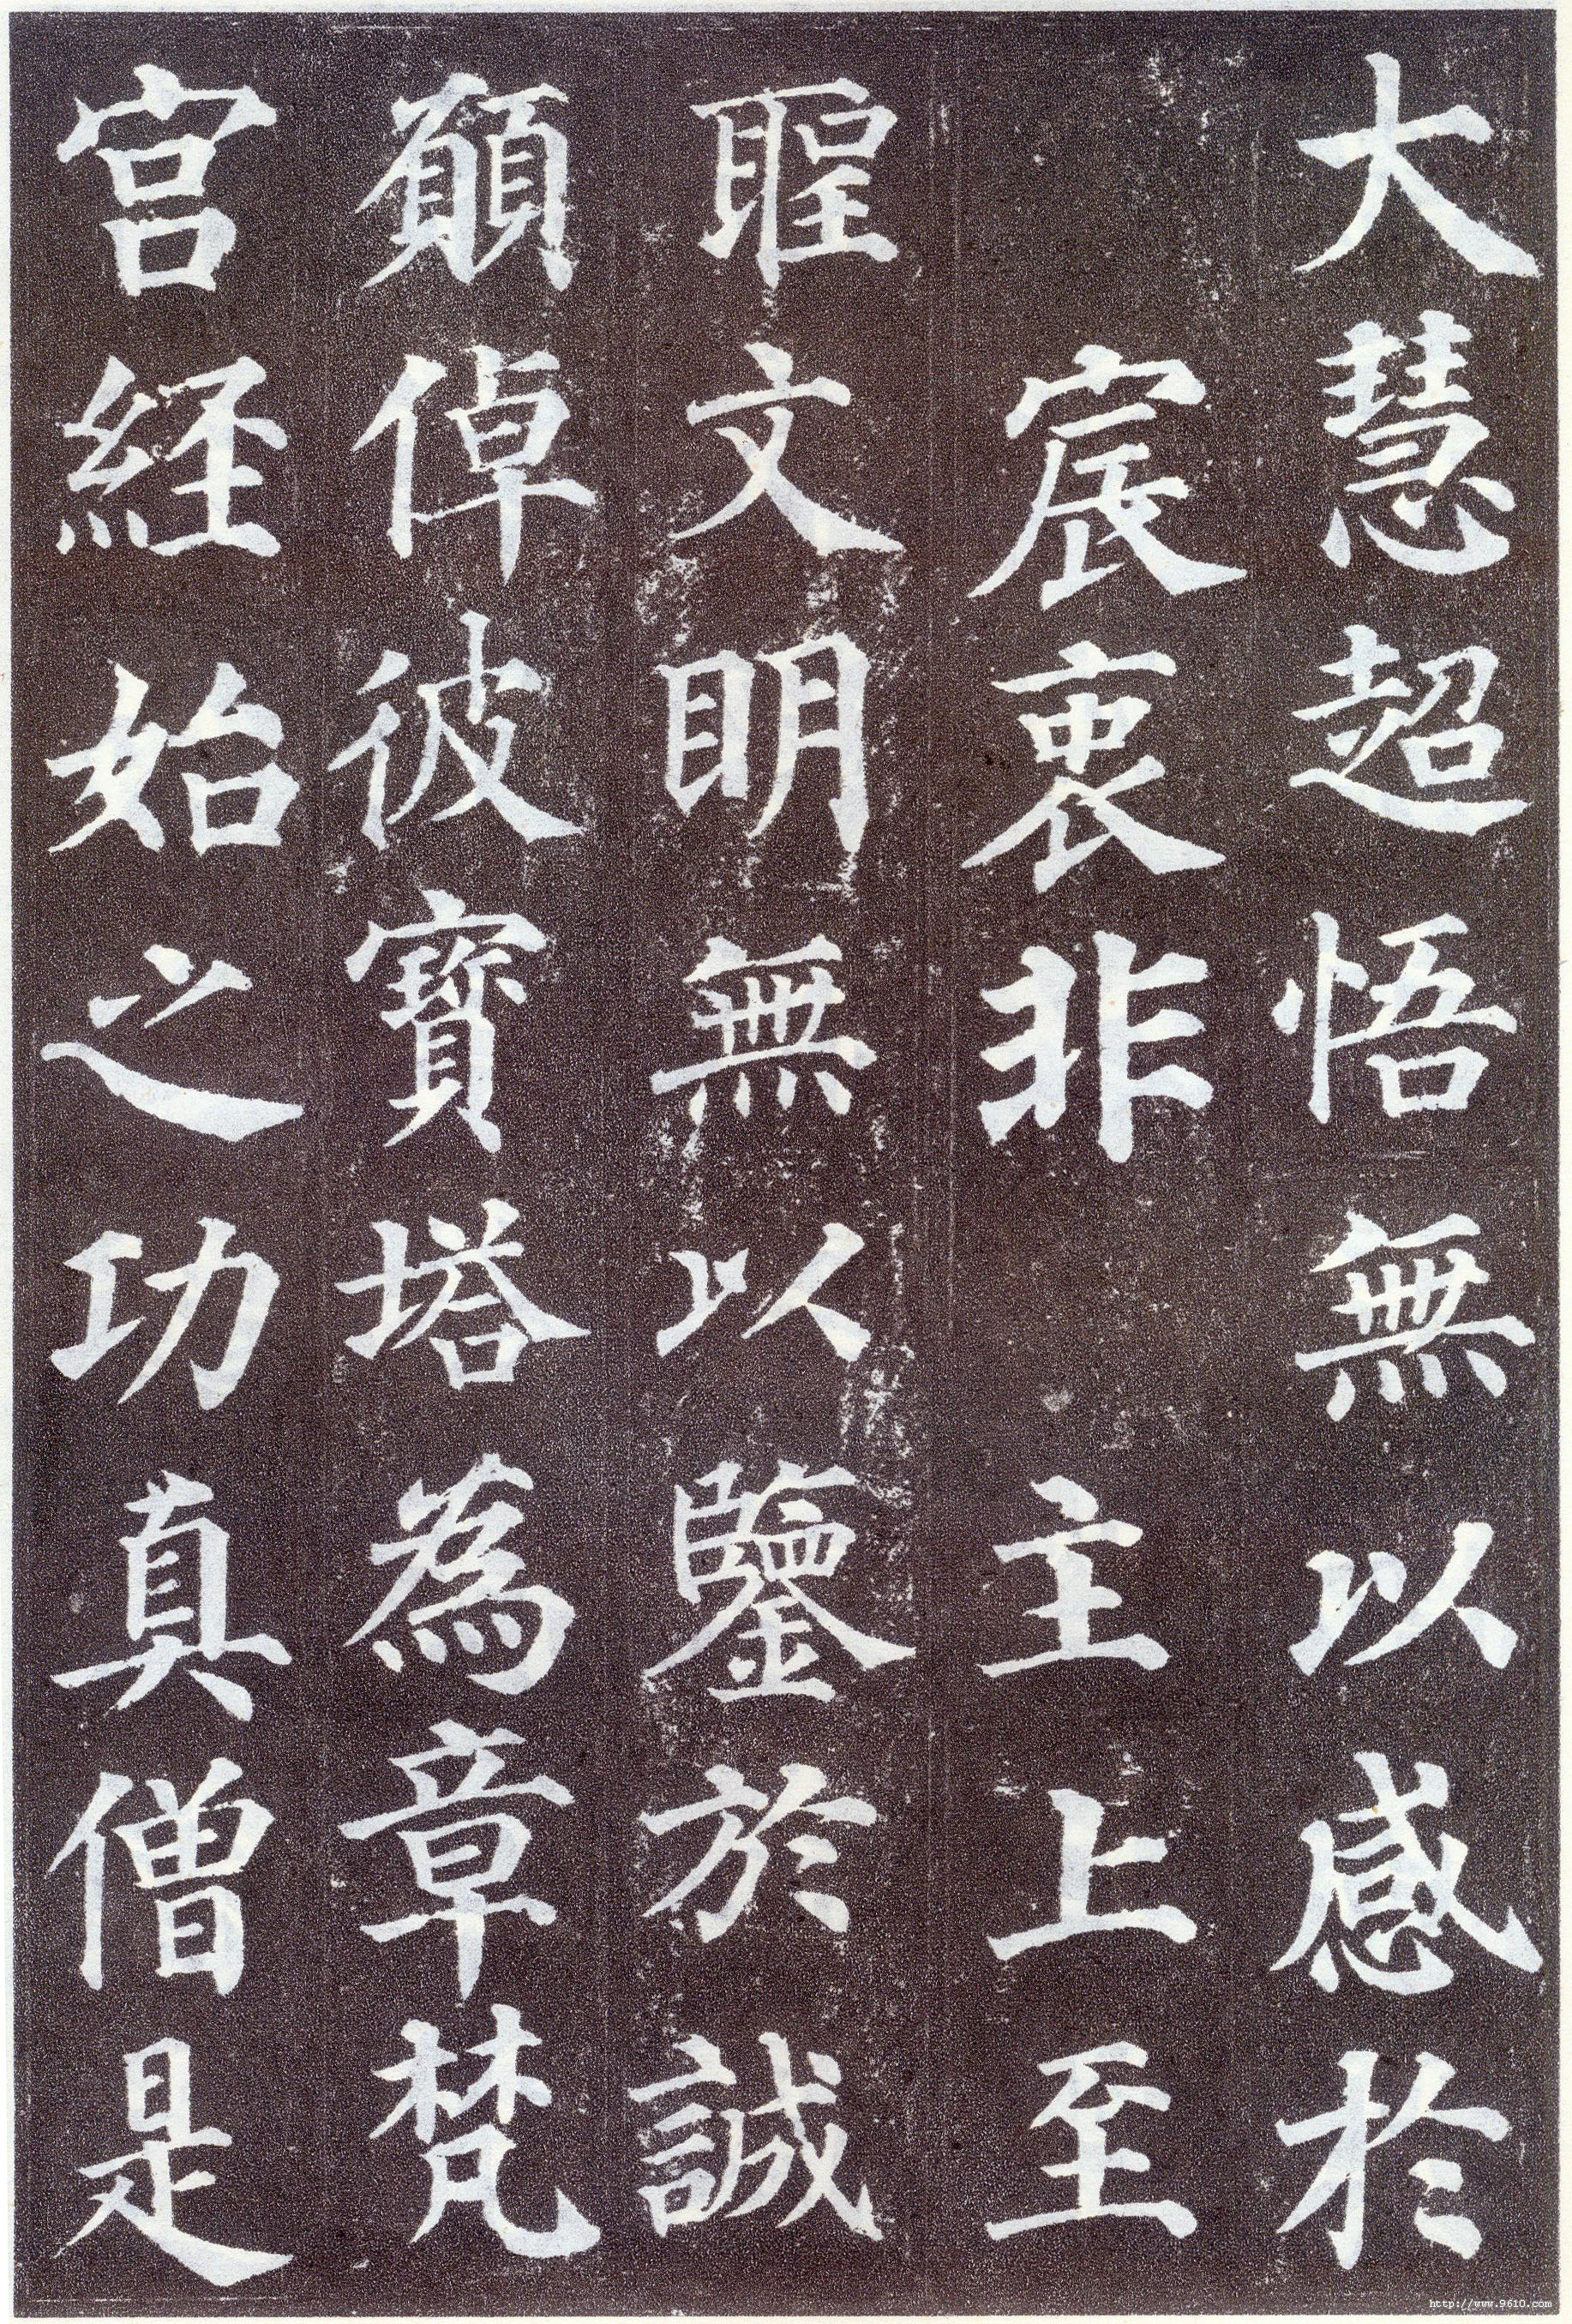 大慧超悟無以感於
宸衷非主上至
聖文明無以鑒於誠
願倬彼寶塔為章梵
宮經始之功真僧是
http://www.9610.com